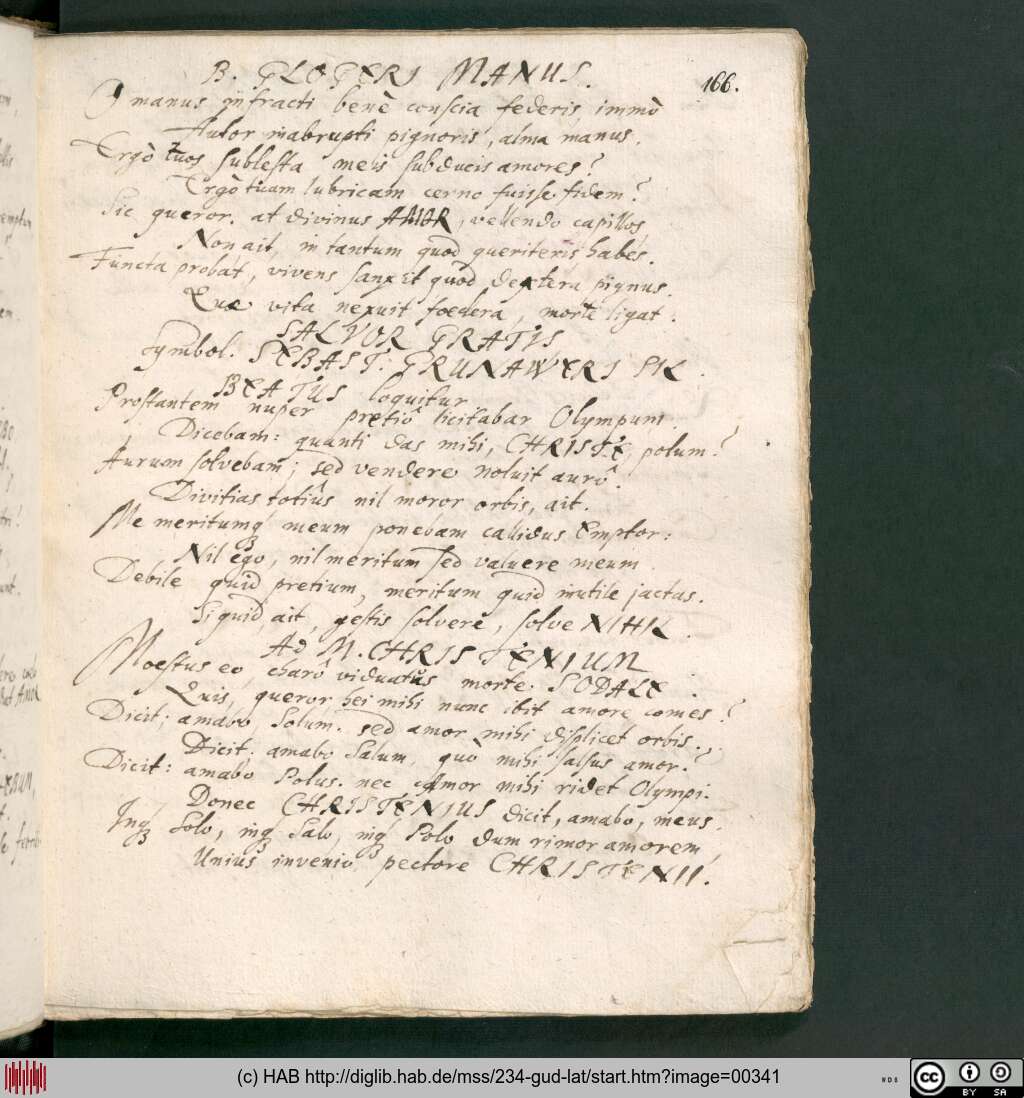 B. GLOGERI MANUS.
166.
O manus infracti benè conscia federis, immò
Autor inabrupti pignoris, alma manus.
Ergò tuos sublesta meis subducis amores?
Ergò tuam lubricam cerno fuisse fidem?
Sic queror. at divinus AMOR, vellendo capillos,
Non ait, in tantum quod queriteris habes.
Functa probat, vivens sanxit quod dextera pignus.
Quæ vita nexuit foedera, morte ligat.
SALVOR GRATIS
Symbol. SEBAST. GRUNAWERI PK.
BEATUS loquitur
Prostantem nuper pretiô licitabar Olympum.
Dicebam: quanti das mihi, CHRISTE, polum?
Aurum solvebam; sed vendere noluit aurô.
Divitias totiûs nil moror orbis, ait.
Me meritumq meum ponebam callidus Emptor:
Nil ego, nil meritum sed valuere meum.
Debile quid pretium, meritum quid inutile jactas.
Si quid, ait, gestis solvere, solve NIHIL.
Ad M. CHRISTENIUM
Moestus eo, charô viduatus morte. SODALE.
Quis, queror, hei mihi nunc ibit amore comes?
Dicit; amabo Solum. sed amor mihi displicet orbis.
Dicit. amabo Salum, quò mihi salsus amor?
Dicit: amabo Polus. nec Amor mihi ridet Olympi.
Donec CHRISTENIUS dicit, amabo, meus.
Inq Solo, inq Salo, inq Polo dum rimor amorem,
Unius invenio pectore CHRISTENII.
(c) HAB http://diglib.hab.de/mss/234-gud-lat/start.htm?image=00341
WDB
cc BY SA